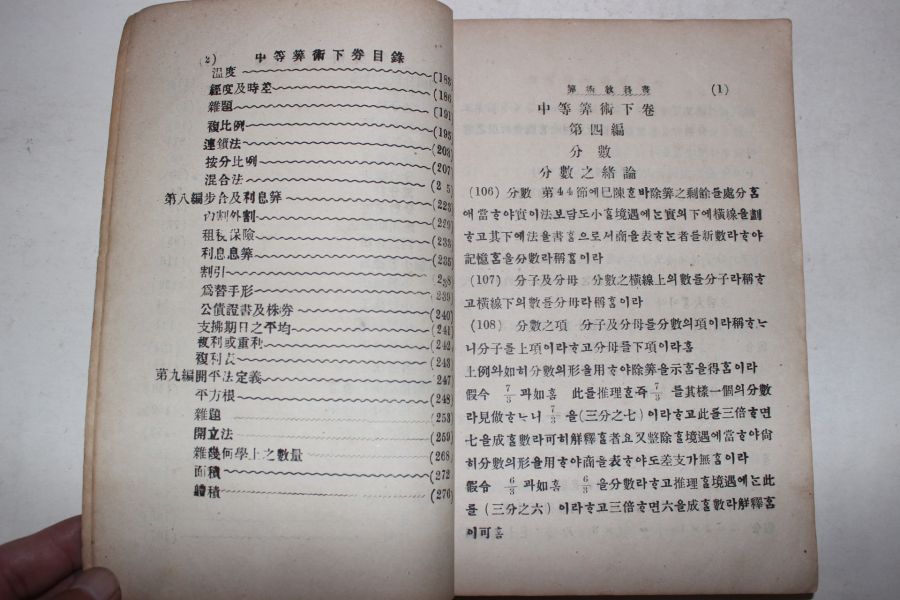 (2) 中等筭術下券目錄
温度 (183)
經度及時差 (186)
雜題 (191)
複比例 (195)
連鎖法 (203)
按分比例 (207)
混合法
第八編步合及利息筭 (223)
內割外割 (229)
租稅保險 (233)
利息息筭 (235)
割引 (238)
爲替手形 (239)
公債證書及株券 (240)
支拂期日之平均 (241)
複利或重利 (242)
複利表 (243)
第九編開平法定義 247
平方根 (248)
雜題 (253)
開立法 (259)
雜幾何學上之數量 (268)
面積 (272)
體積 (276)
筭術敎科書 (1)
中等筭術下卷
第四編
分數
分數之緒論
(106) 分數 第44節에已陳ᄒᆞᆫ바除筭之剩餘를處分ᄒᆞᆷ
애當ᄒᆞ야實이法보담도小ᄒᆞᆫ境遇에ᄂᆞᆫ實의下에橫線을劃
ᄒᆞ고其下에法을書ᄒᆞᆷ으로서商을表ᄒᆞᄂᆞᆫ者를新數라ᄒᆞ야
記憶ᄒᆞᆷ을分數라稱ᄒᆞᆷ이라
(107) 分子及分母 分數之橫線上의數를分子라稱ᄒᆞ
고橫線下의數를分母라稱ᄒᆞᆷ이라
(108) 分數之項 分子及分母를分數의項이라稱ᄒᆞᄂᆞ
니分子를上項이라ᄒᆞ고分母를下項이라ᄒᆞᆷ
上例와如히分數의形을用ᄒᆞ야除筭을示ᄒᆞᆷ을得ᄒᆞᆷ이라
假令 7/3 과如ᄒᆞᆷ 此를推理ᄒᆞᆫ즉 7/3 를其樣一個의分數
라見做ᄒᆞᄂᆞ니 7/3 을(三分之七)이라ᄒᆞ고此를三倍ᄒᆞ면
七을成ᄒᆞᆯ數라可히解釋ᄒᆞᆯ者요又整除ᄒᆞᆯ境遇에當ᄒᆞ야尙
히分數의形을用ᄒᆞ야商을表ᄒᆞ야도差支가無ᄒᆞᆷ이라
假令 6/3 과如ᄒᆞᆷ 6/3 을分數라ᄒᆞ고推理ᄒᆞᆯ境遇에ᄂᆞᆫ此
를(三分之六)이라ᄒᆞ고三倍ᄒᆞ면六을成ᄒᆞᆯ數라解釋ᄒᆞᆷ
이可ᄒᆞᆷ